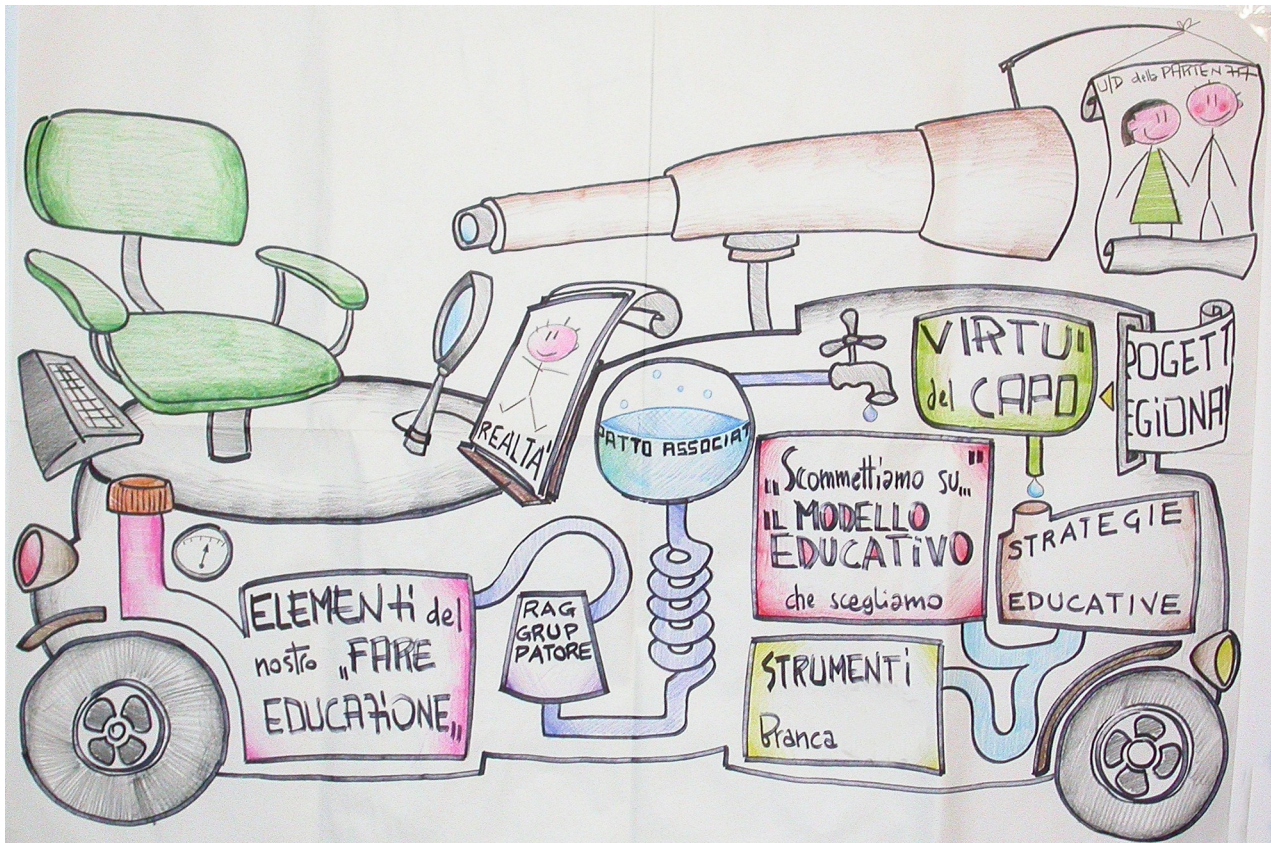 U/D della PARTENZA
REALTA'
PATTO ASSOCIAT
VIRTU'
del CAPO
POGETT
EGIONA
„Scommettiamo su..."
IL MODELLO
EDUCATIVO
che scegliamo
STRATEGIE
EDUCATIVE
ELEMENTi del
nostro „FARE
EDUCAZIONE„
RAG
GRUP
PATORE
STRUMENTi
Branca